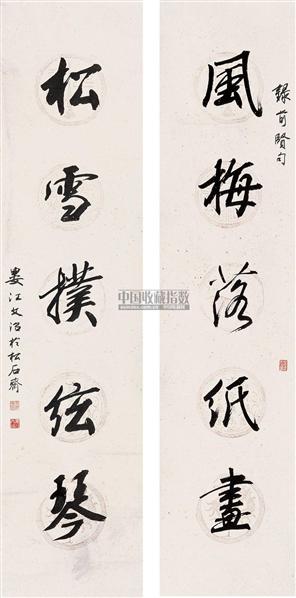 錄前賢句
風梅落紙畫
松雪撲弦琴
婁江文治於松石齋
中国收藏指数